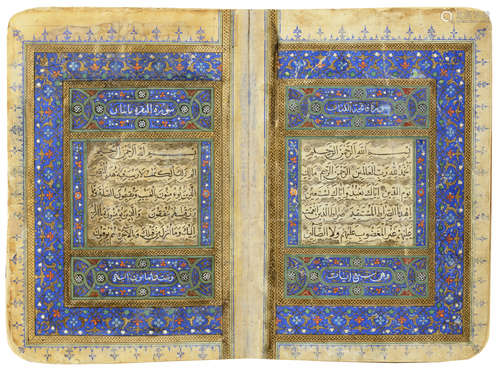 سورة فاتحة الكتاب
بسم الله الرحمن الرحيم
الحمد لله رب العالمين الرحمن الرحيم ملك
يوم الدين اياك نعبد واياك نستعين اهدنا
الصراط المستقيم صراط الذين انعمت
عليهم غير المغضوب عليهم ولا الضالين
وهي سبع ايات
سورة البقرة مائتان
بسم الله الرحمن الرحيم
الم ذلك الكتاب لا ريب فيه هدى
للمتقين الذين يؤمنون بالغيب ويقيمون الصلوة
ومما رزقناهم ينفقون والذين يؤمنون بما انزل
اليك وما انزل من قبلك وبالاخرة هم يوقنون
وست وثمانون اية